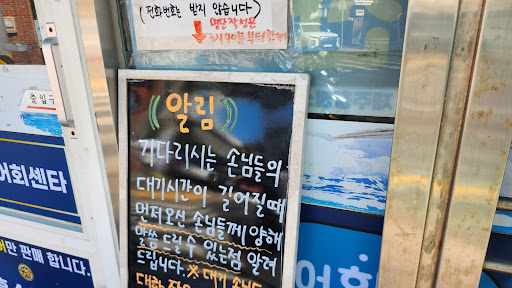 (전화번호는 받지 않습니다)
명단작성은
부터
출입구
((알림))
기다리시는 손님들의
대기시간이 길어질때
먼저 오신 손님들께 양해
말씀 드릴 수 있는점 알려
드립니다. X 대기 손님
어회센타
만 판매 합니다.